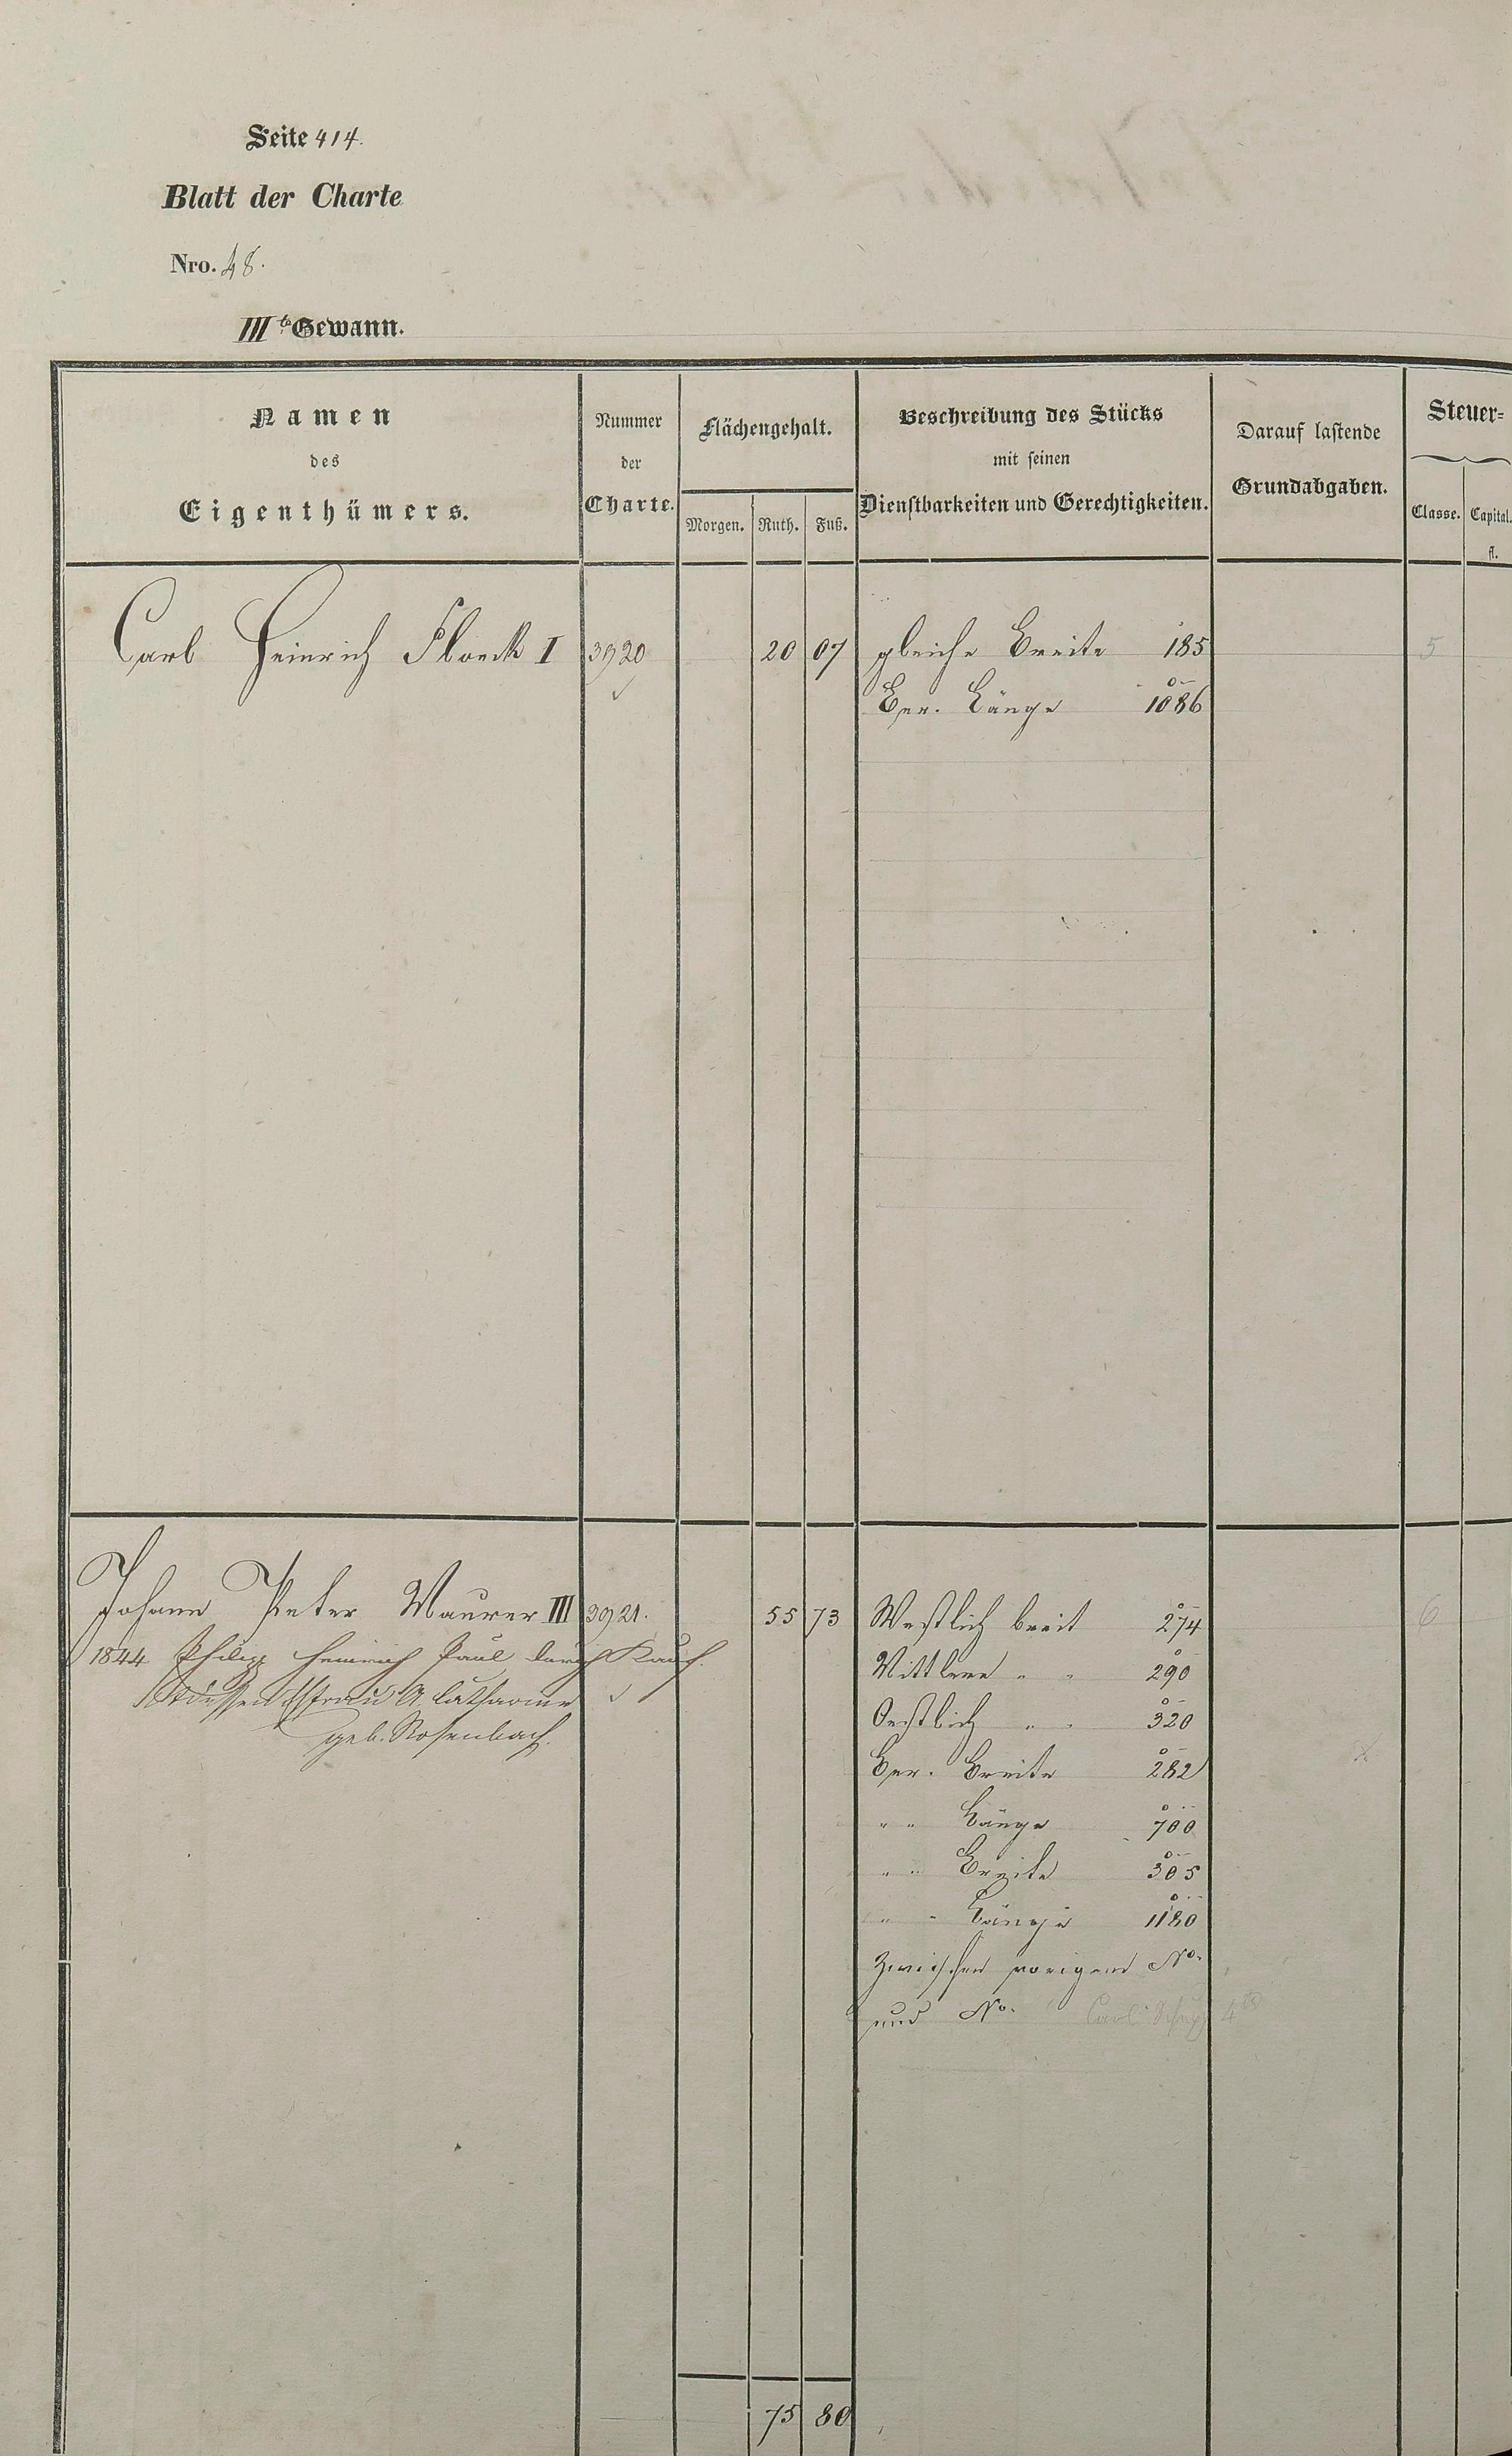 Seite 414.
Blatt der Charte
Nro. 48.
III te Gewann.
Namen
des
Eigenthümers.
Nummer
der
Charte.
Flächengehalt.
Morgen. Ruth. Fuß.
Beschreibung des Stücks
mit seinen
Dienstbarkeiten und Gerechtigkeiten.
Darauf lastende
Grundabgaben.
Steuer-
Classe. Capital.
fl.
Carl Heinrich Floeck I 3920 20 07 gleiche Breite 185 5
Ber. Länge 1086
Johann Peter Maurer III 3921. 55 73 Westlich breit 274 6
1844 Philipp Heinrich Paul durch Kauf. Mittlere " " 290
dessen Ehefrau A. Catharine
Oestlich " " 320
geb. Rosenbach.
Ber. Breite 282
" " Länge 700
" " Breite 305
" " Länge 1180
Zwischen vorigem No.
und No. Carl 4
75 80